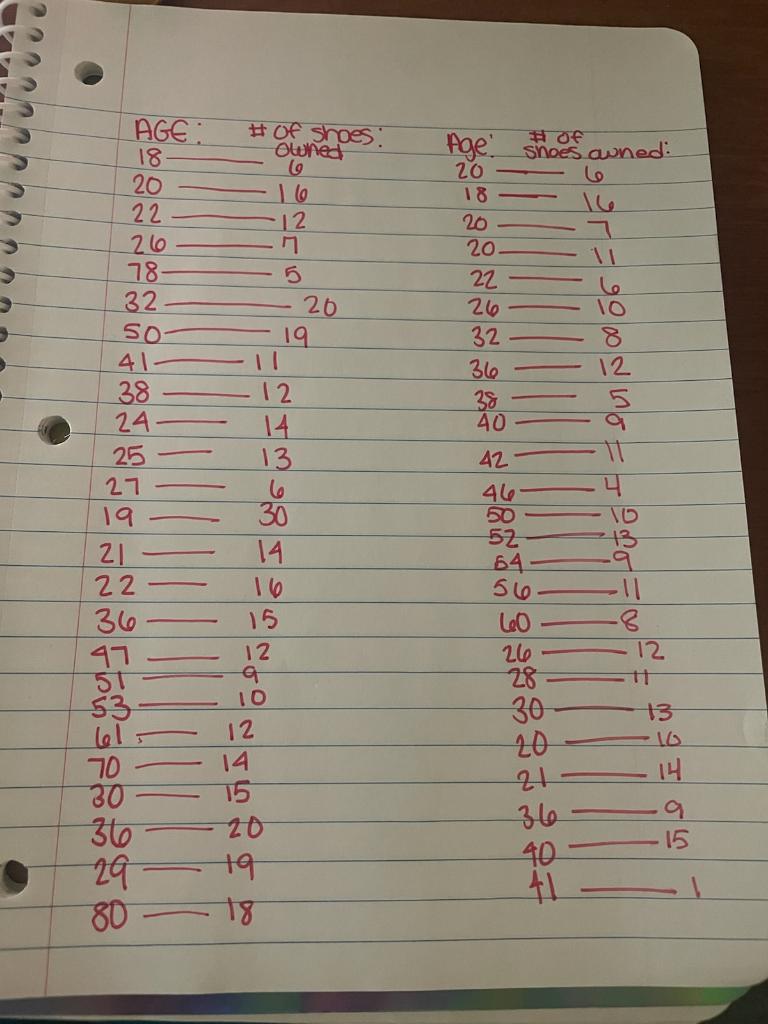 AGE: # of shoes: owned
18 — 6
20 — 16
22 — 12
26 — 7
78 — 5
32 — 20
50 — 19
41 — 11
38 — 12
24 — 14
25 — 13
27 — 6
19 — 30
21 — 14
22 — 16
36 — 15
47 — 12
51 — 9
53 — 10
61 — 12
70 — 14
30 — 15
36 — 20
29 — 19
80 — 18
Age: # of shoes owned:
20 — 6
18 — 16
20 — 7
20 — 11
22 — 6
26 — 10
32 — 8
36 — 12
38 — 5
40 — 9
42 — 11
46 — 4
50 — 10
52 — 13
54 — 9
56 — 11
60 — 8
26 — 12
28 — 11
30 — 13
20 — 10
21 — 14
36 — 9
40 — 15
41 — 1